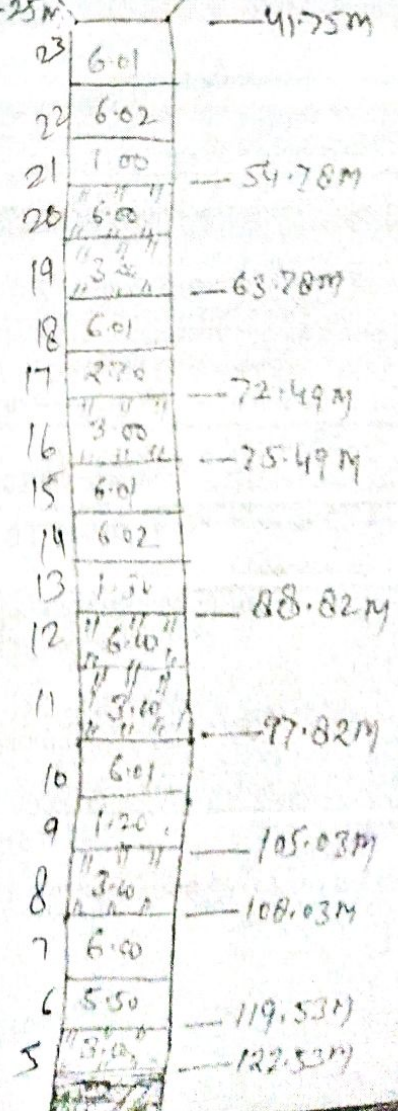 .25M 41.75M
23 6.01
22 6.02
21 1.00
54.78M
20 6.00
19 3.00
63.78M
18 6.01
17 2.70
72.49M
16 3.00
75.49M
15 6.01
14 6.02
13 1.30
88.82M
12 6.00
11 3.00
97.82M
10 6.01
9 1.20
105.03M
8 3.00
108.03M
7 6.00
6 5.50
119.53M
5 3.00
122.53M